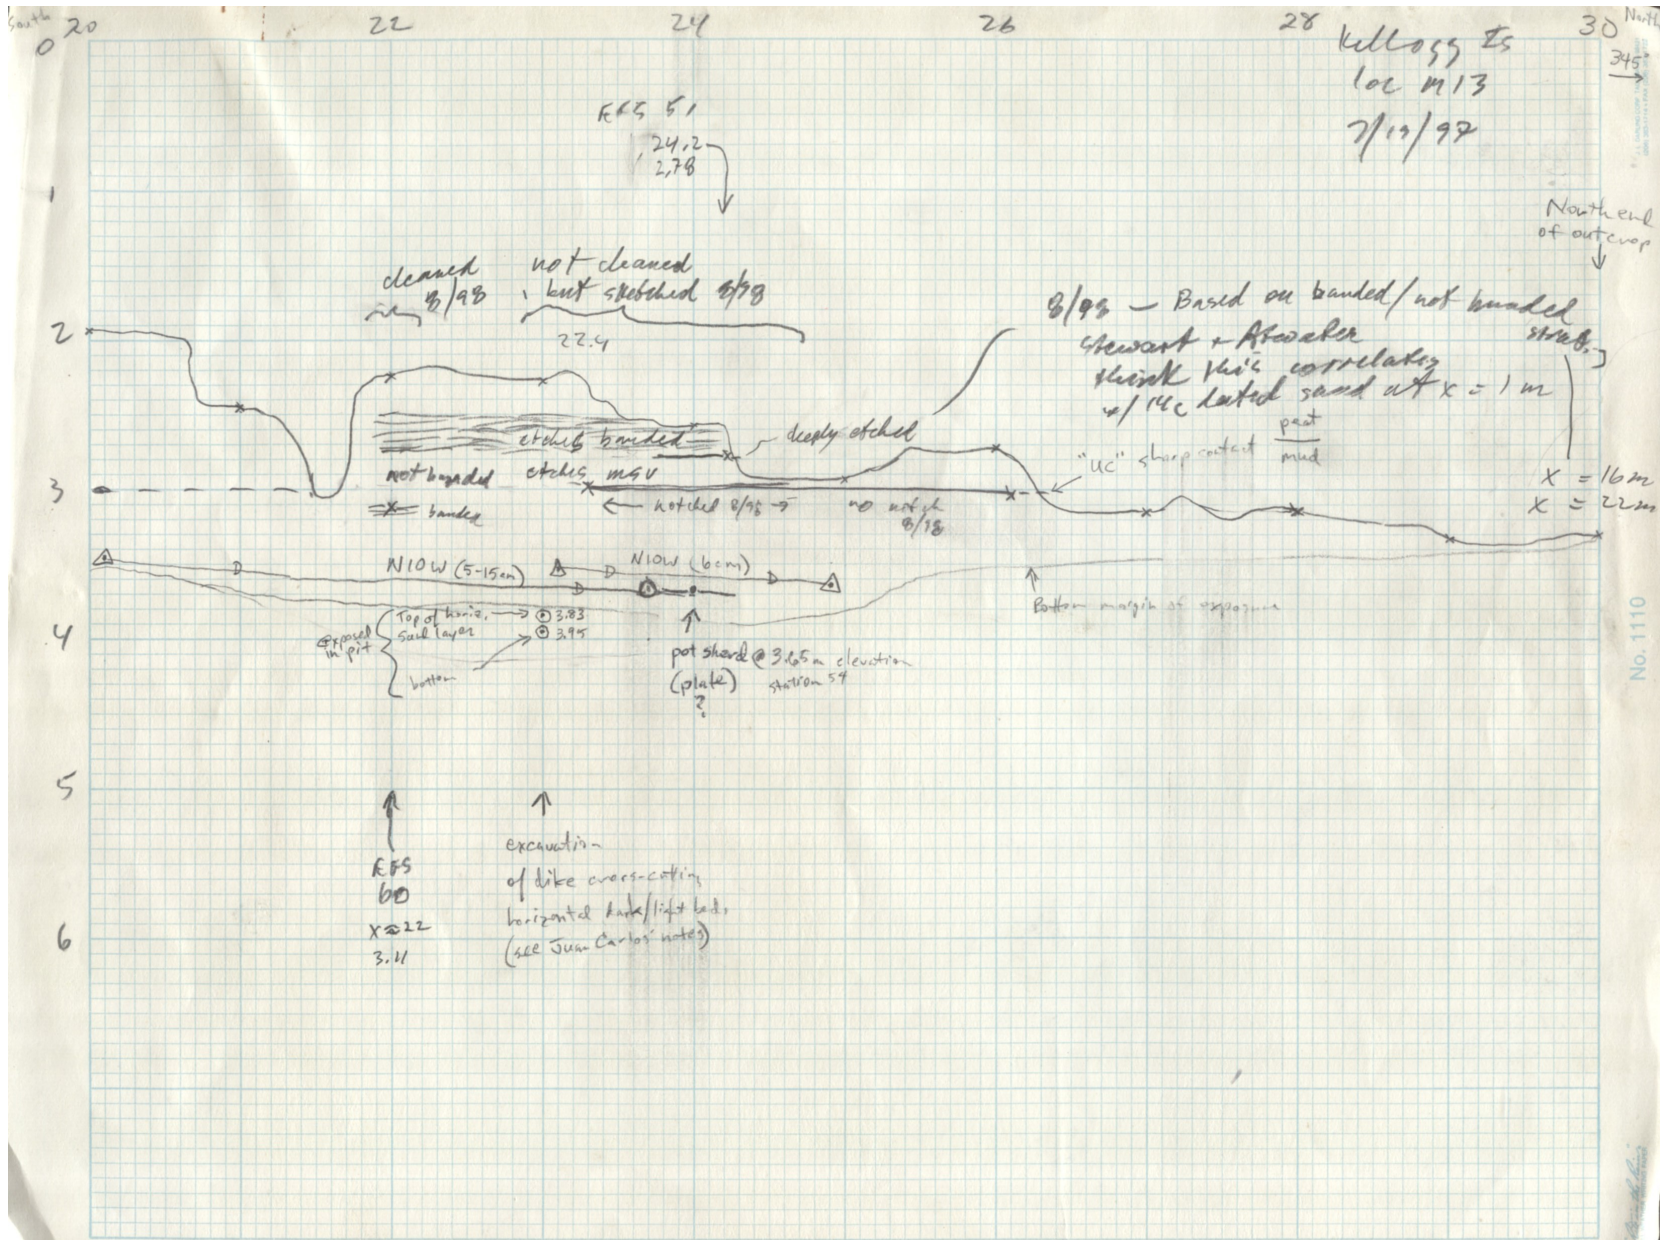 South 20 22 24 26 28 30 North
0
345
Kellogg Is
loc M13
7/19/97
EFS 51
24.2
2.78
1
North end
of outcrop
cleaned
8/98
not cleaned
but sketched 8/98
22.4
8/98 — Based on banded/not banded
strat.
Stewart + Atwater
think this correlates
w/ 14C dated sand at x = 1 m
2
etches banded
deeply etched
"UC" sharp contact
peat
mud
not banded
etches msv
3
x = 16m
x = 22m
banded
← notched 8/98 →
no notch
8/98
N10W (5-15cm)
N10W (6cm)
Top of horiz.
sand layer
3.83
3.95
exposed
in pit
bottom
4
Bottom margin of exposure
pot sherd @ 3.65m elevation
(plate)
station 54
?
5
EFS
60
x≈22
3.11
excavation
of dike cross-cutting
horizontal dark/light beds
(see Juan Carlos' notes)
6
No. 1110